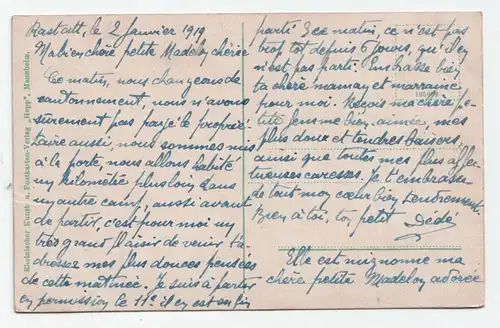 Rastatt, le 2 Janvier 1919
Ma bien chère petite Madelon chérie
Ce matin, nous changeons de
cantonnement, nous n'avons
sûrement pas payé le proprié-
taire aussi, nous sommes mis
à la porte, nous allons habité
un kilomètre plus loin dans
un autre camp, aussi avant
de partir, c'est pour moi un
très grand plaisir de venir t'a-
dressez mes plus douces pensées
de cette matinée. Je suis à partir
en permission le 11e il y est enfin
parti 3 ce matin, ce n'est pas
trop tôt depuis 6 jours, qu'il y en
n'est pas parti. Embrasse bien
ta chère maman et marraine
pour moi. Reçois ma chère pe-
tite femme bien-aimée, mes
plus doux et tendres baisers
ainsi que toutes mes plus affec-
tueuses caresses. Je t'embrasse
de tout mon cœur bien tendrement.
Bien à toi, ton petit Dédé
Elle est mignonne ma
chère petite Madelon adorée
Rheinischer Kunst- u. Postkarten-Verlag "Hepp", Mannheim.